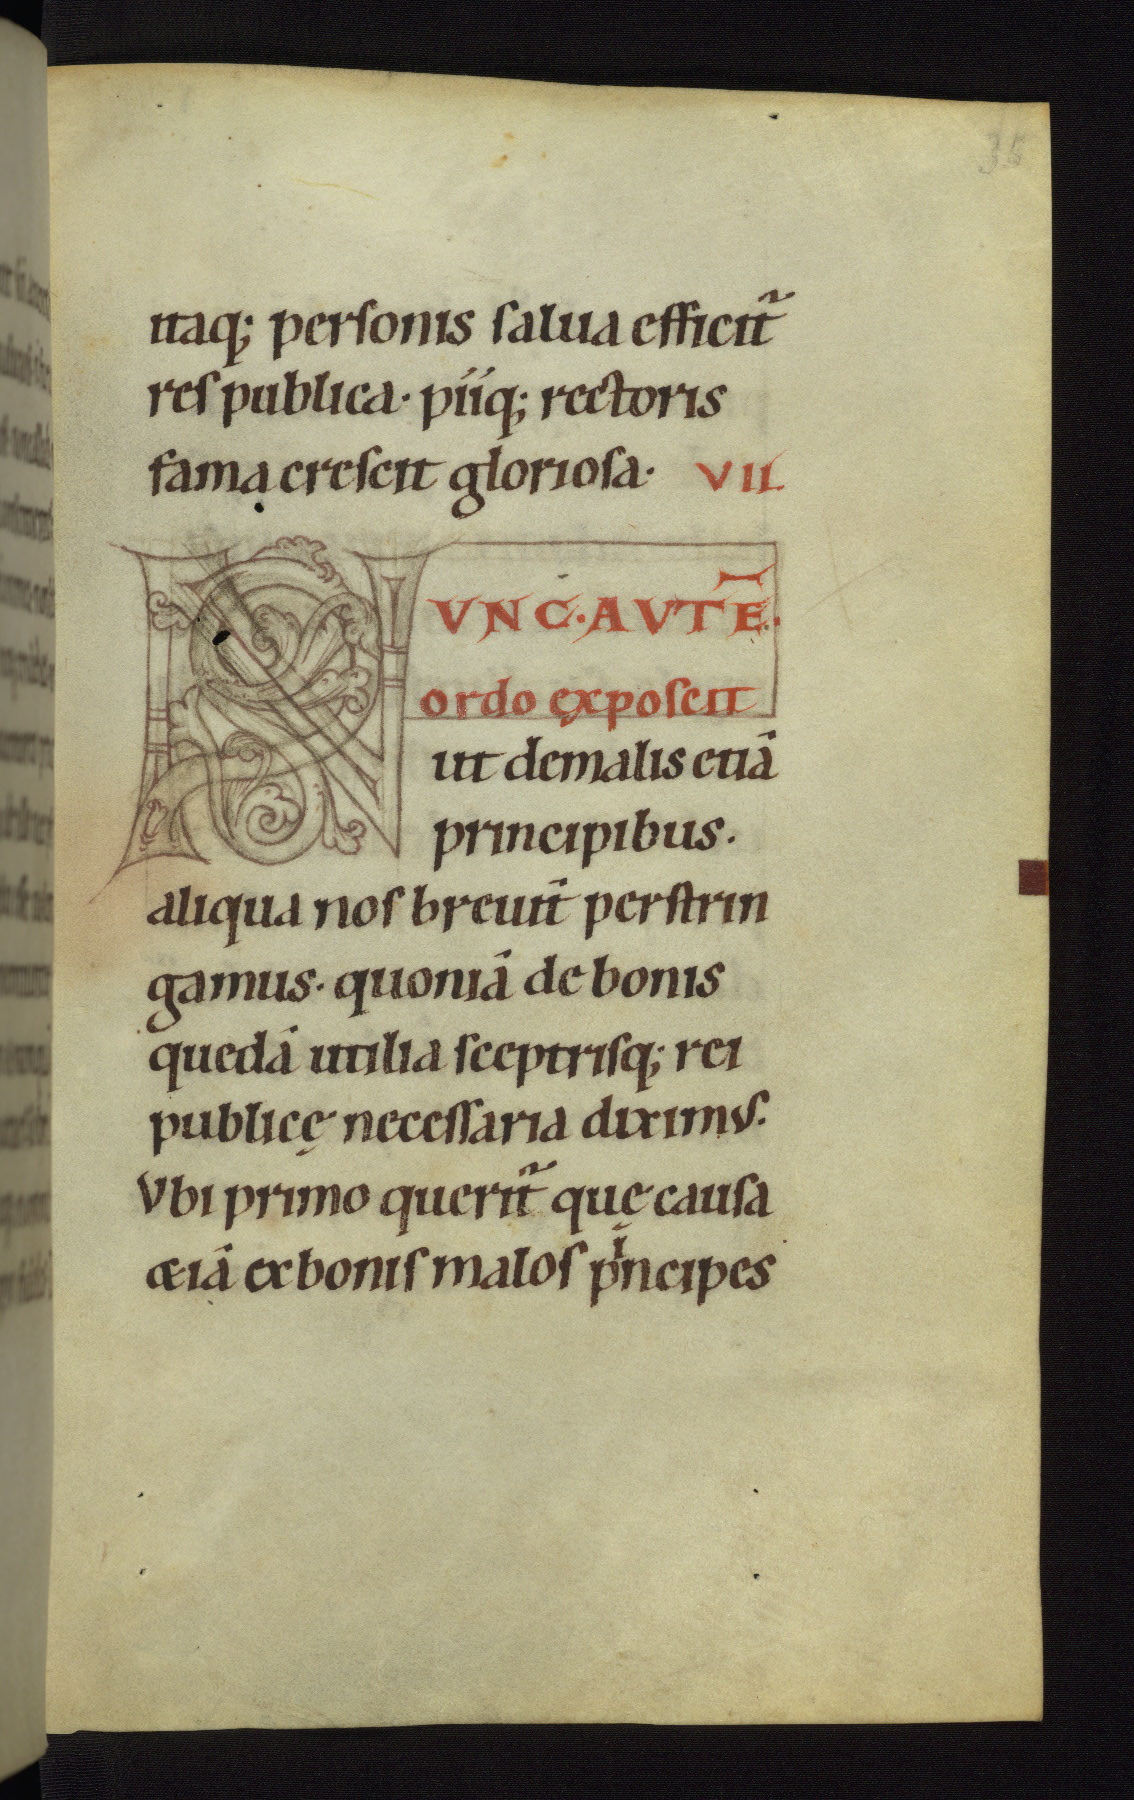 35
itaq; personis salua efficit᷑
res publica· piiq; rectoris
fama crescit gloriosa· VII.
NVNC·AVTĒ·
ordo exposcit
ut demalis etiā
principibus.
aliqua nos breuit̄ perstrin
gamus· quoniā de bonis
quedā utilia sceptrisq; rei
publicę necessaria diximus.
Vbi primo querit᷑ quę causa
etiā exbonis malos pⁱncipes